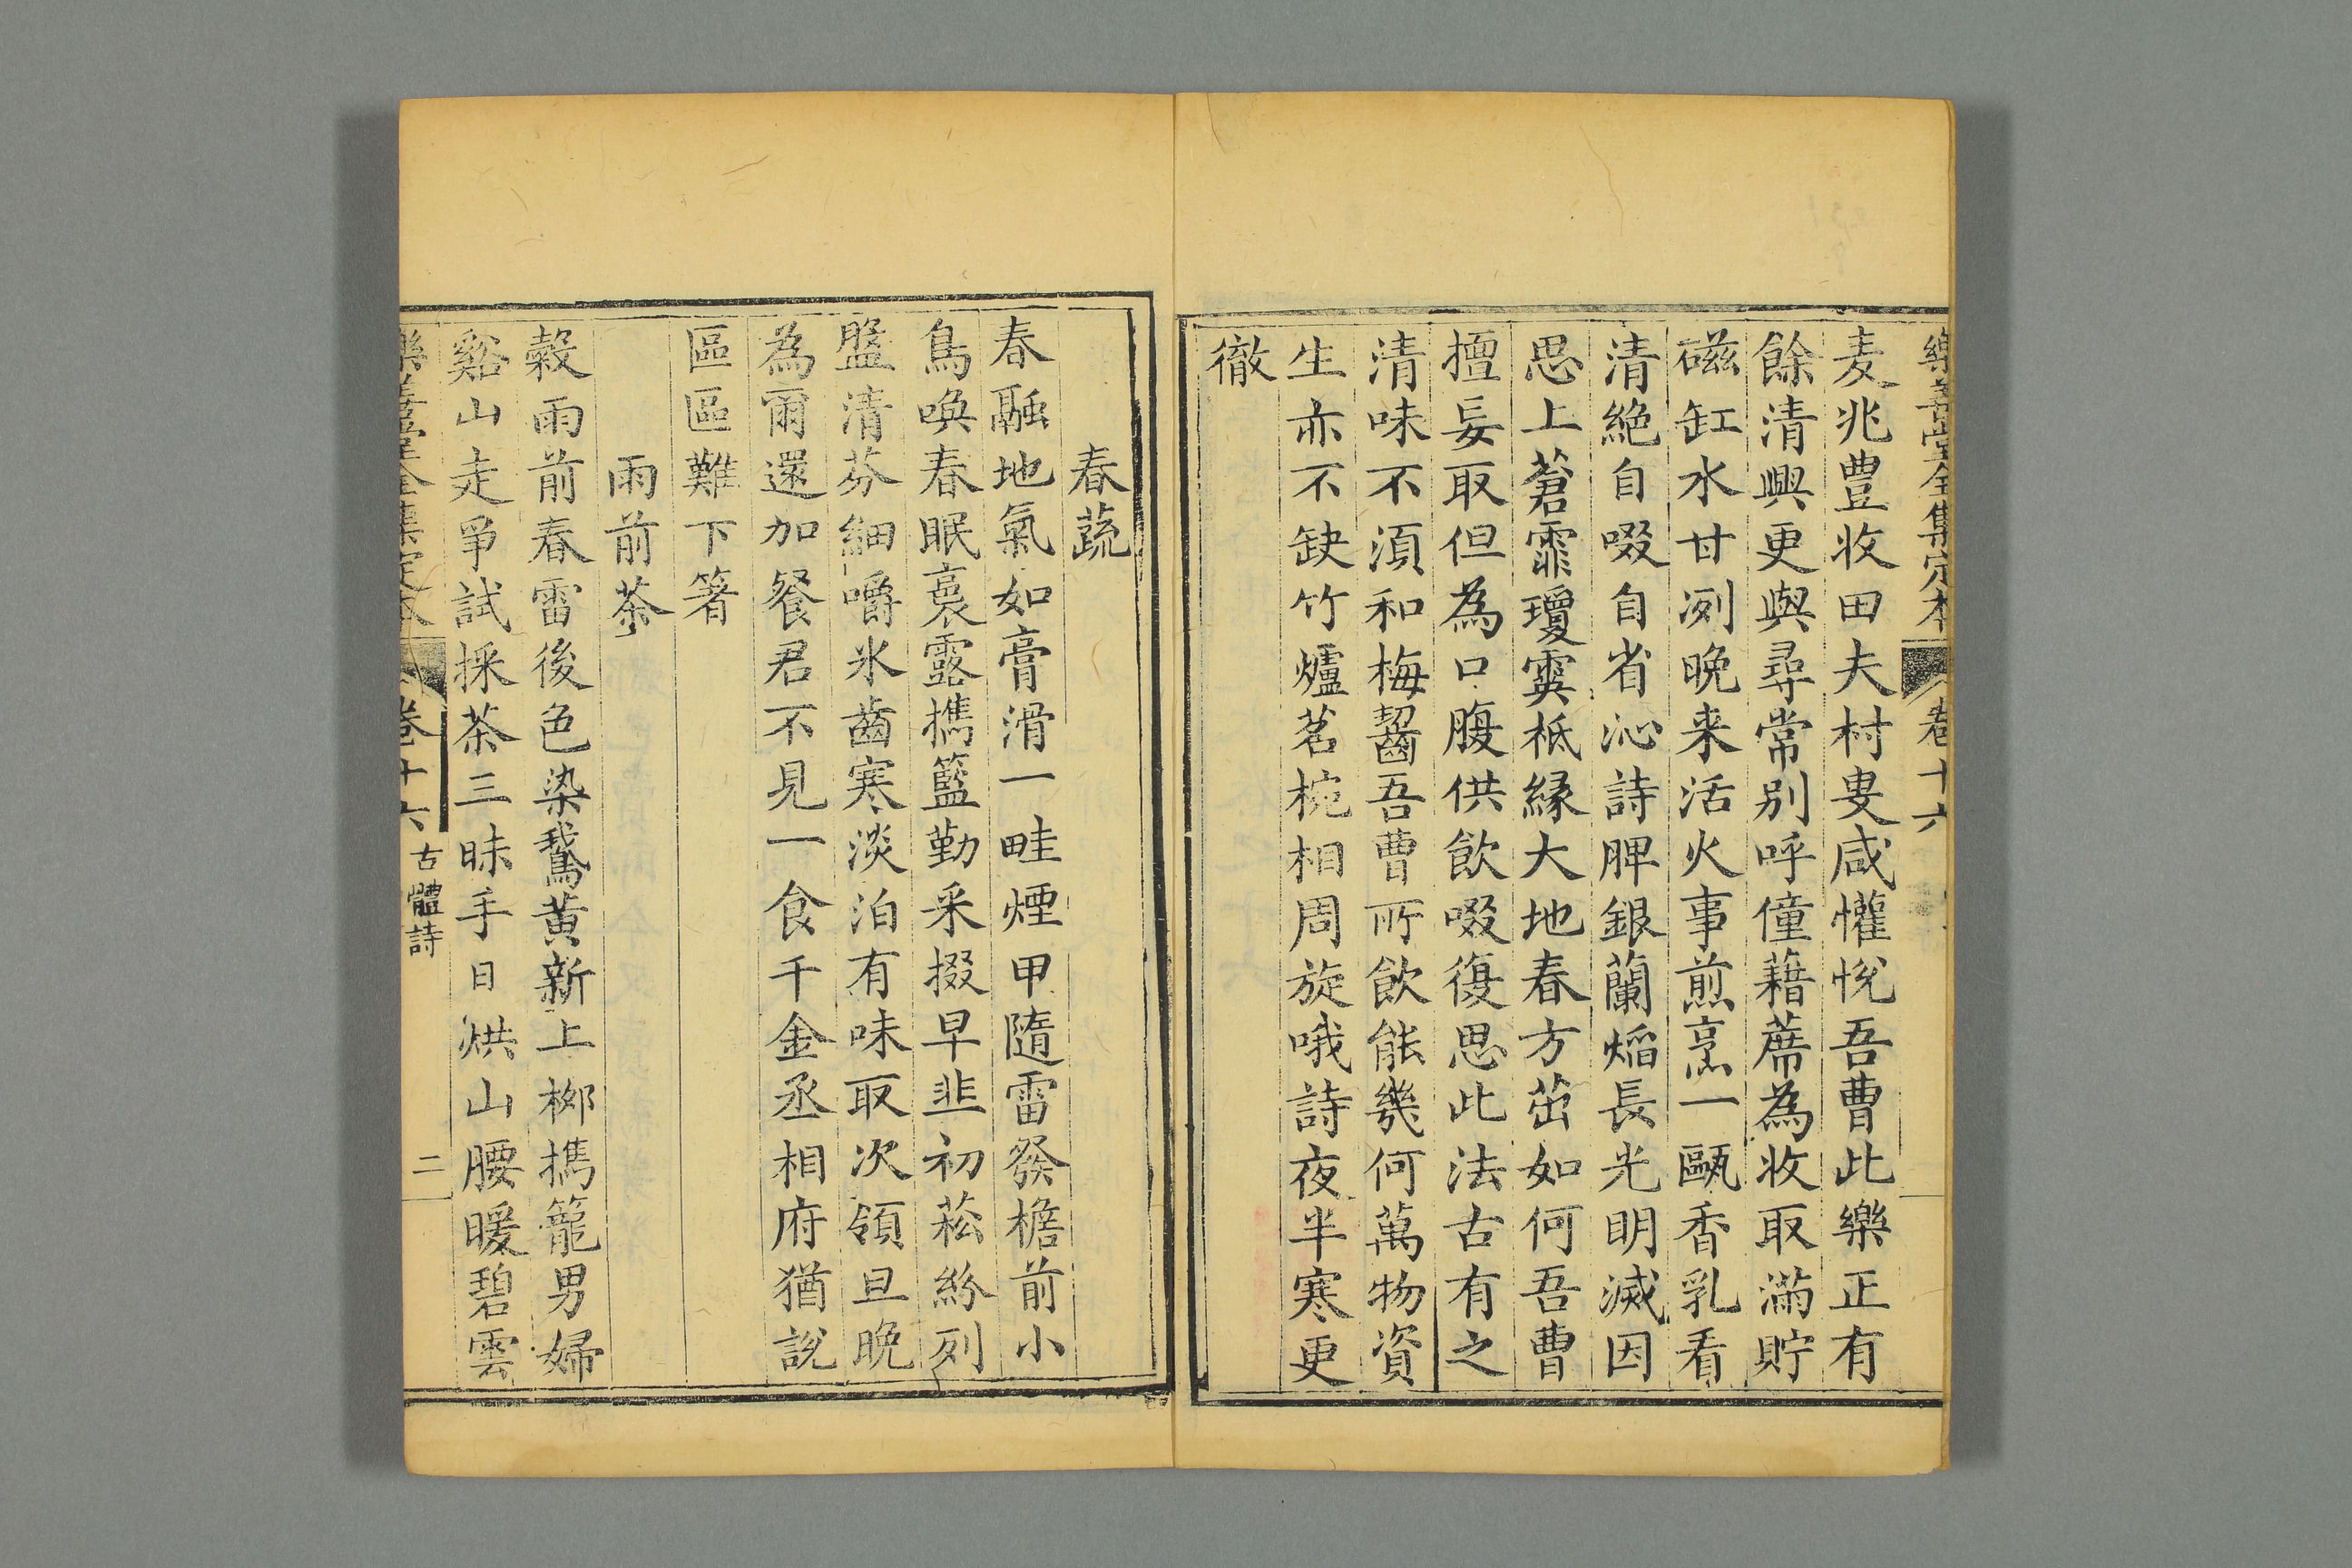 樂善堂全集定本 卷十六
麦兆豊收田夫村叟咸懽悅吾曹此樂正有
餘清興更與尋常別呼僮藉蓆為收取滿貯
磁缸水甘冽晩来活火事煎烹一甌香乳看
清絶自啜自省沁詩脾銀蘭熖長光明滅因
思上蒼霏瓊霙柢縁大地春方茁如何吾曹
擅妄取但為口腹供飲啜復思此法古有之
清味不湏和梅齧吾曹所飲能幾何萬物資
生亦不缺竹爐茗椀相周旋哦詩夜半寒更
徹
春蔬
春融地氣如膏滑一畦煙甲隨雷發檐前小
鳥喚春眠裛露攜籃勤采掇早韭初菘紛列
盤清芬細嚼氷齒寒淡泊有味取次領旦晩
為爾還加餐君不見一食千金丞相府猶說
區區難下箸
雨前茶
穀雨前春雷後色染鵞黄新上栁攜籠男婦
谿山走爭試採茶三昧手日烘山腰暖碧雲
樂善堂全集定本 卷十六 古體詩 二